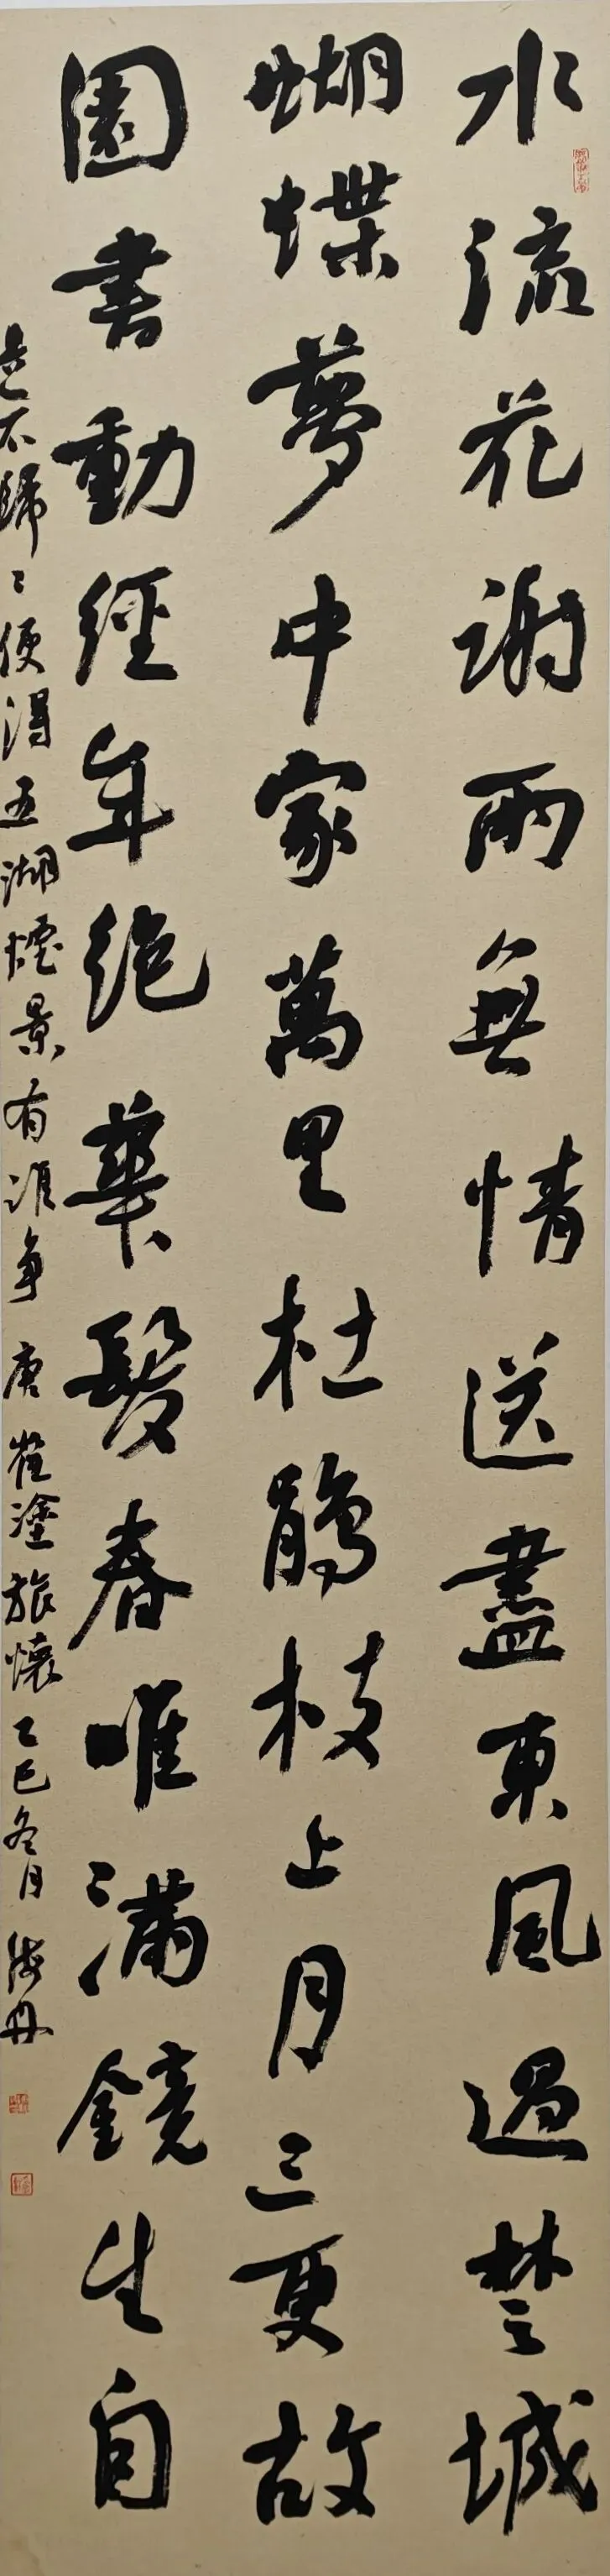 水流花謝兩無情送盡東風過楚城
蝴蝶夢中家萬里杜鵑枝上月三更故
園書動經年絕華髮春唯滿鏡生自
是不歸〻便得五湖煙景有誰爭 唐崔塗旅懷 乙巳冬月